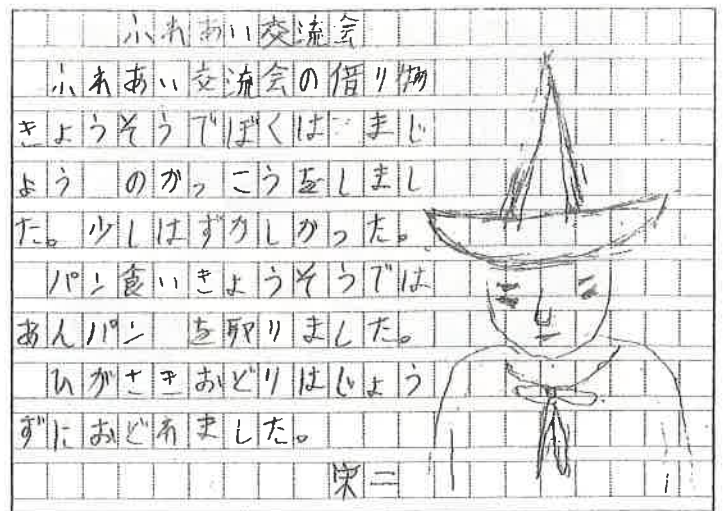 ふれあい交流会
ふれあい交流会の借り物
きょうそうでぼくは まじ
ょう のかっこうをしまし
た。少しはずかしかった。
パン食いきょうそうでは
あんパン を取りました。
ひがさきおどりはじょう
ずにおどれました。
栄二